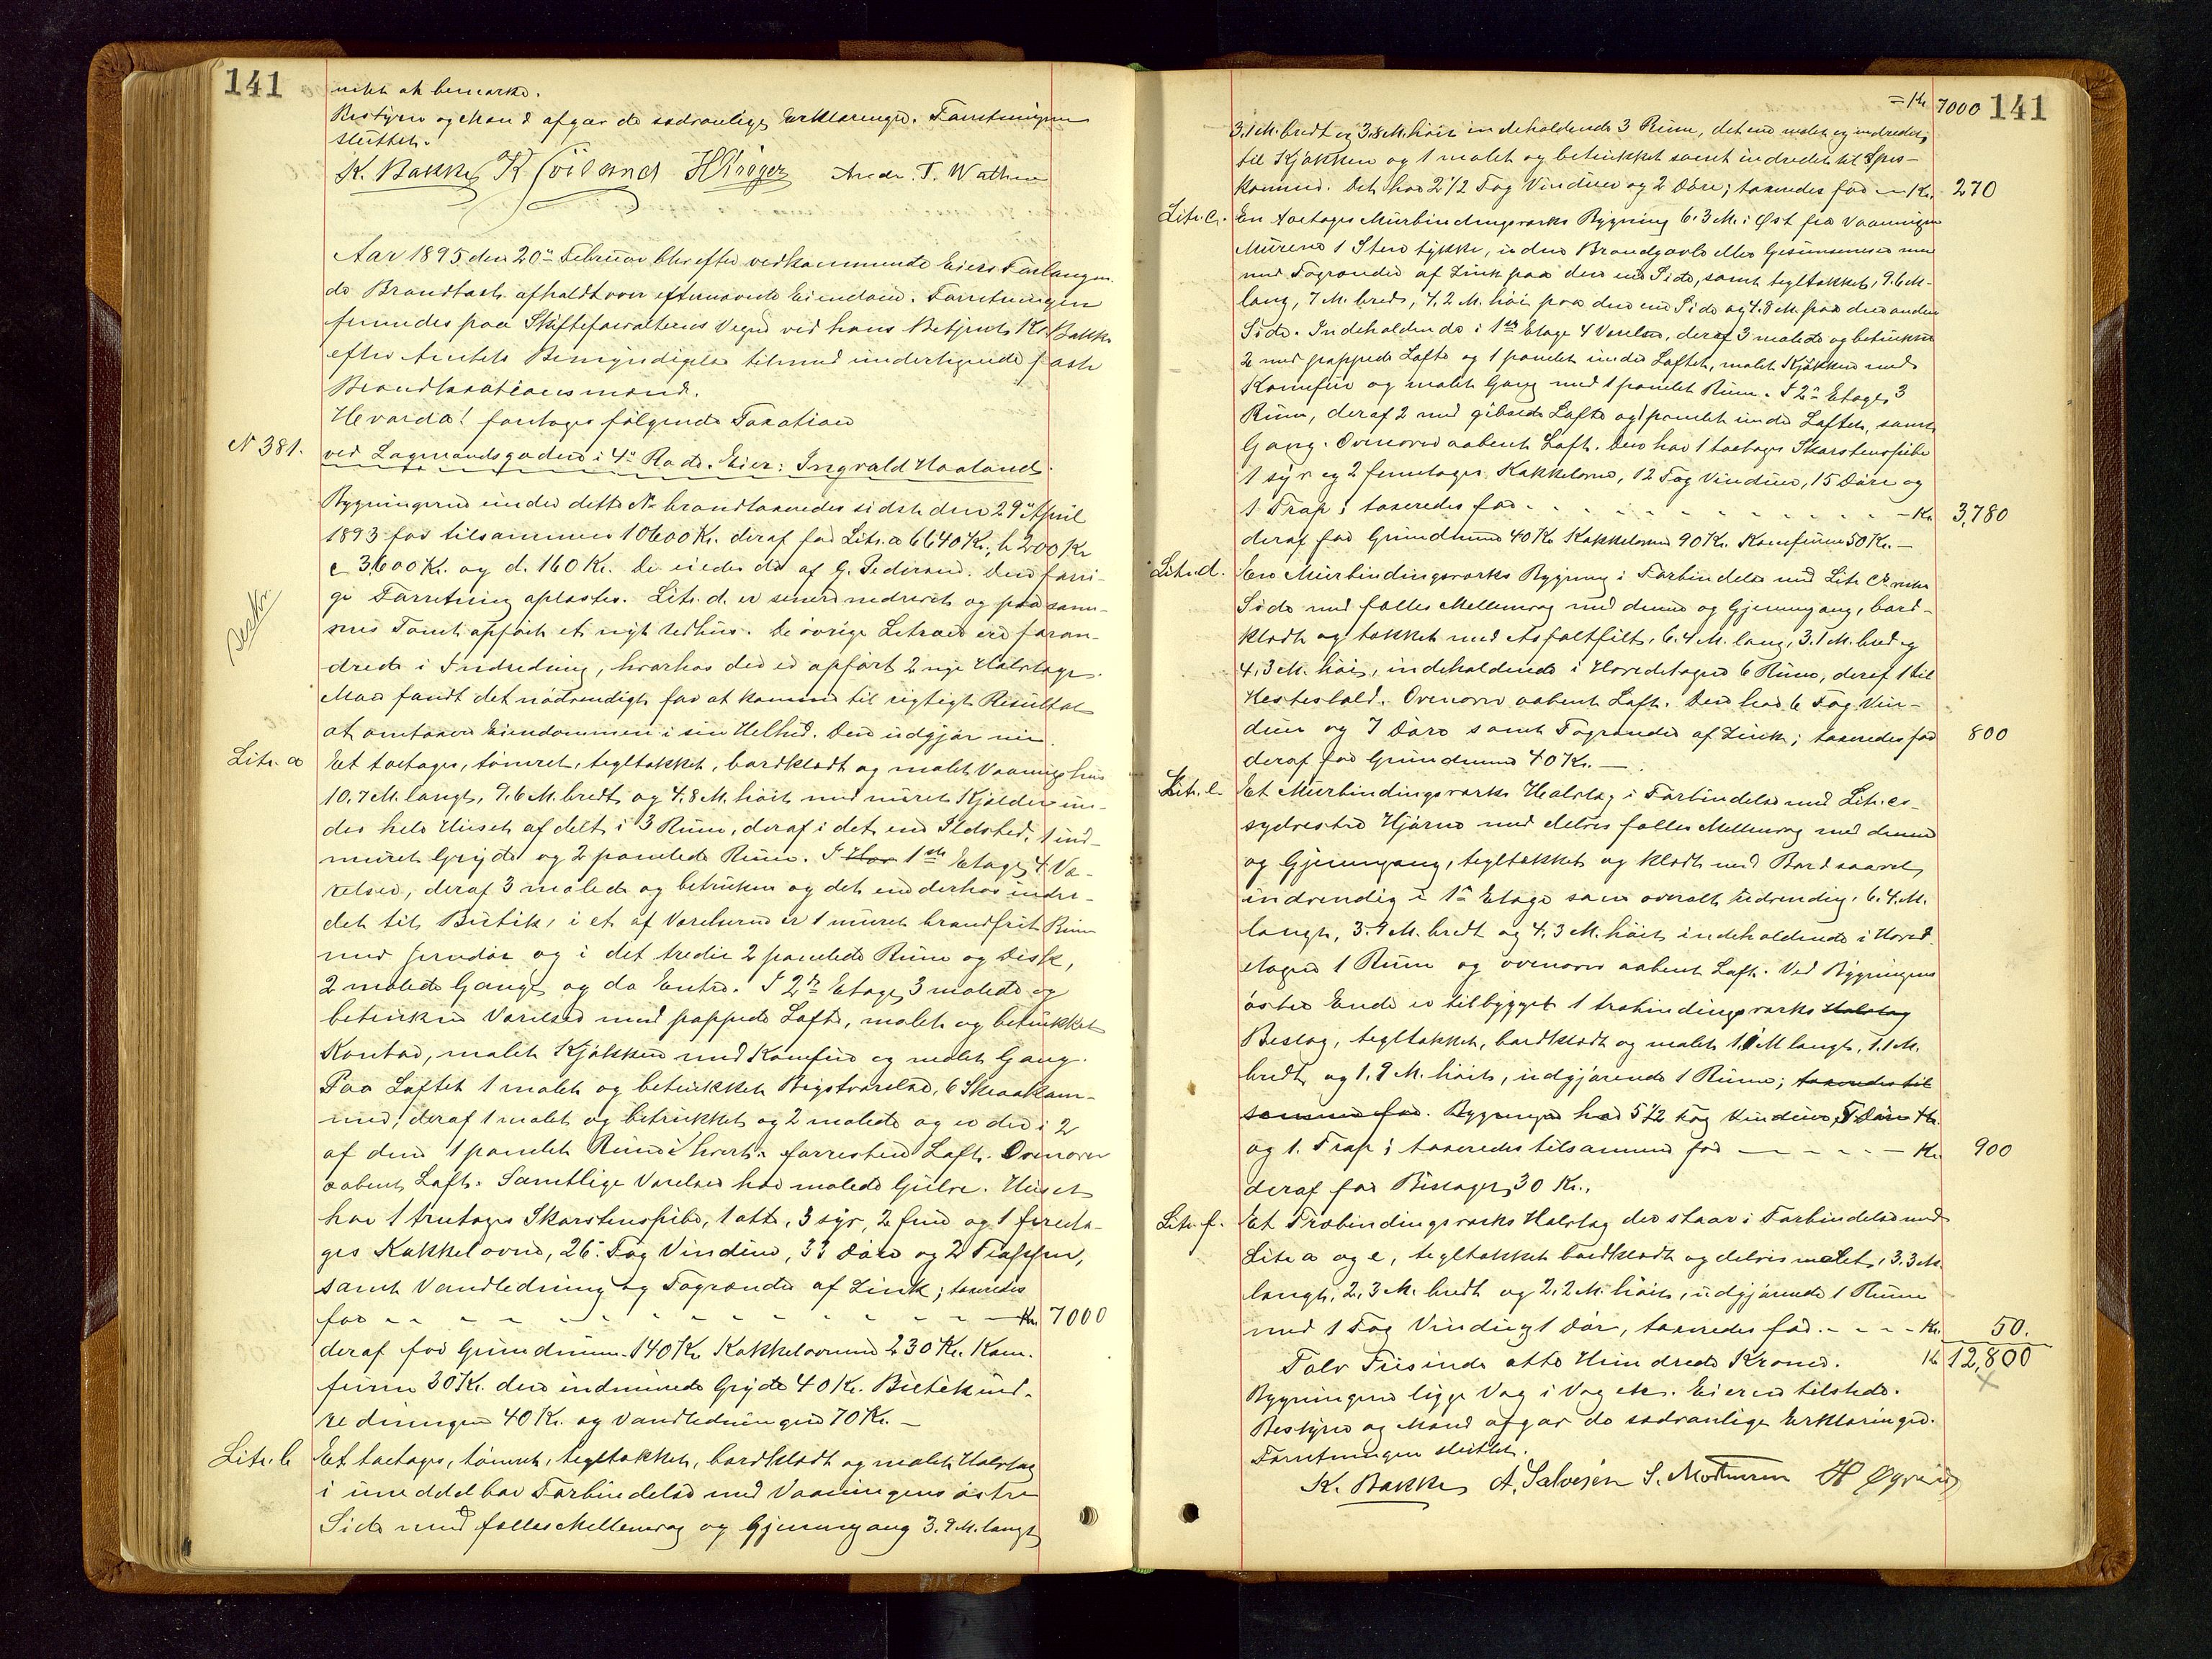 141
intet at bemærke.
Bestyrer og Mænd afgav de sædvanlige Erklæringer. Forretningen
sluttet.
K. Bakke K Andr. T. Wathne
Aar 1895 den 20de Februar blev efter vedkommende Eiers Forlangen-
de Brandtaxt afholdt over efternævnte Eiendom. Forretningen
fremmedes paa Skifteforvalterens Vegne ved hans Betjent K. Bakke
efter Amtets Bemyndigelse tilmed undertegnede faste
Brandtaxationsmænd.
Hvorda! foretoges følgende Taxation
No 381. ved Lagmandsgaden i 4de Rode. Eier: Ingvald Haaland.
Bygningerne under dette No brandtaxeredes sidst den 29de April
1893 for tilsammen 10600 Kr. deraf for Litr. a 6640 Kr., b 200 Kr
c 3600 Kr. og d. 160 Kr. De eiedes da af G. Pedersen. Den forri-
ge Forretning oplæstes. Litr. d. er senere nedrevet og paa sam-
mes Tomt opført et nyt Udhus. De øvrige Litraer ere foran-
drede i Indredning, hvorhos der er opført 2 nye Halvtage.
Man fandt det nødvendigt for at komme til rigtigt Resultat
at omtaxere Eiendommen i sin Helhed. Den udgjør nu.
Litr. a Et toetages, tømret, tegltækket, bordklædt og malet Vaaningshus
10.7 M. langt, 9.6 M. bredt og 4.8 M. høit med muret Kjælder un-
der hele Huset afdelt i 3 Rum, deraf i det ene Ildsted, 1 ind-
muret Gryde og 2 panelede Rum. I Hov 1ste Etage 4 Væ-
relser, deraf 3 malede og betrukne og det ene derhos indre-
det til Butik, i et af Værelserne er 1 muret brandfrit Rum
med Jerndør og i det tredie 2 panelede Rum og Disk,
2 malede Gange og do Entre. I 2den Etage 3 malede og
betrukne Værelser med pappede Lofte, malet og betrukket
Kontor, malet Kjøkken med Komfur og malet Gang.
Paa Loftet 1 malet og betrukket Kvistværelse, 6 Skraakam-
mer, deraf 1 malet og betrukket og 2 malede og er der i 2
af dem 1 panelet Rum i hvert forresten Loft. Ovenover
aabent Loft. Samtlige Værelser har malede Gulve. Huset
har 1 tretages Skorstenspibe, 1 otte, 3 syv, 2 fem og 1 fireta-
ges Kakkelovne, 26 Fag Vinduer, 33 Døre og 2 Trapper,
samt Vandledning og Tagrender af Zink; taxeredes
for - - - - - - Kr. 7000
deraf for Grundmur 140 Kr. Kakkelovnene 230 Kr. Kom-
furene 30 Kr. den indmurede Gryde 40 Kr. Butikind-
redningen 40 Kr. og Vandledningen 70 Kr. —
Litr. b Et toetages, tømret, tegltækket, bordklædt og malet Halvtag
i umiddelbar Forbindelse med Vaaningens østre
Side med fælles Mellemvæg og Gjennemgang 3.9 M. langt
= Kr. 7000 141
3.1 M. bredt og 3.8 M. høit indeholdende 3 Rum, det ene malet og indredet
til Kjøkken og 1 malet og betrukket samt indredet til Spis-
kammer. Det har 2 1/2 Fag Vinduer og 2 Døre; taxeredes for — Kr. 270
Litr. c. En toetages Murbindingsværks Bygning 6.3 M. i Øst fra Vaaningen
Murene 1 Sten tykke, uden Brandgavle eller Gesimsenese men
med Tagrender af Zink paa den ene Side, samt tegltækket, 9.6 M-
lang, 7 M. bred, 4.2 M. høi paa den ene Side og 4.8 M. paa den anden
Side. Indeholdende i 1ste Etage 4 Værelser, deraf 3 malede og betrukne
2 med pappede Lofte og 1 panelet under Loftet, malet Kjøkken med
Komfur og malet Gang med 1 panelet Rum. I 2den Etage 3
Rum, deraf 2 med gibsede Lofte og 1 panelet under Loftet, samt
Gang. Ovenover aabent Loft. Den har 1 toetages Skorstenspibe
1 syv og 2 femetages Kakkelovne, 12 Fag Vinduer, 15 Døre og
1 Trap; taxeredes for - - - - - - Kr. 3,780
deraf for Grundmur 40 Kr. Kakkelovne 90 Kr. Komfuren 50 Kr. —
Litr. d. En Murbindingsværks Bygning i Forbindelse med Litr. c's
Side med fælles Mellemvæg med denne og Gjennemgang, bord-
klædt og tækket med Asfaltfilt, 6.4 M. lang, 3.1 M. bred og
4.3 M. høi, indeholdende i Hovedetagen 6 Rum, deraf 1 til
Hestestald. Ovenover aabent Loft. Den har 6 Fag Vin-
duer og 7 Døre samt Tagrender af Zink; taxeredes for 800
deraf for Grundmur 40 Kr. —
Litr. e. Et Murbindingsværks Halvtag i Forbindelse med Litr. c's
sydvestre Hjørne med delvis fælles Mellemvæg med denne
og Gjennemgang, tegltækket og klædt med Bord saavel
indvendig i 1ste Etage som overalt udvendig, 6.4 M.
langt, 3.9 M. bredt og 4.3 M. høit, indeholdende i Hoved-
etagen 1 Rum og ovenover aabent Loft. Ved Bygningens
østre Ende er tilbygget 1 træbindingsværks Halvtag
Bislag, tegltækket, bordklædt og malet 1.1 M langt, 1.1 M.
bredt og 1.9 M. høit, udgjørende 1 Rum; taxeredes til
sammen for. Bygningen har 5 1/2 Fag Vinduer, 5 Døre
og 1. Trap; taxeredes tilsammen for — — — — Kr. 900
deraf for Bislaget 30 Kr..
Litr. f. Et Træbindingsværks Halvtag der staar i Forbindelse med
Litr a og e, tegltækket bordklædt og delvis malet, 3.3 M.
langt, 2.3 M. bredt og 2.2 M. høit, udgjørende 1 Rum
med 1 Fag Vindu og 1 Dør, taxeredes for - - - Kr. 50.
Tolv Tusinde otte Hundrede Kroner. Kr 12,800
Bygningerne ligge Væg i Væg etc. Eieren tilstede.
Bestyrer og Mænd afgav de sædvanlige Erklæringer.
Forretningen sluttet.
K. Bakke A. Salvesen S. H